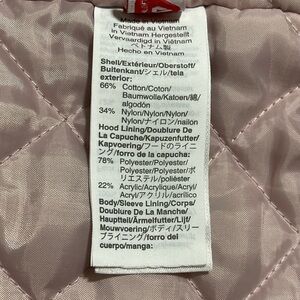 Made in Vietnam
Fabriqué au Vietnam
In Vietnam Hergestellt
Vervaardigd in Vietnam
ベトナム製
Hecho en Vietnam
Shell/Extérieur/Oberstoff/
Buitenkant/シェル/tela
exterior:
66% Cotton/Coton/
Baumwolle/Katoen/綿/
algodón
34% Nylon/Nylon/Nylon/
Nylon/ナイロン/nailon
Hood Lining/Doublure De
La Capuche/Kapuzenfutter/
Kapvoering/フードのライニ
ング/forro de la capucha:
78% Polyester/Polyester/
Polyester/Polyester/ポ
リエステル/poliéster
22% Acrylic/Acrylique/Acryl/
Acryl/アクリル/acrílico
Body/Sleeve Lining/Corps/
Doublure De La Manche/
Hauptteil/Ärmelfutter/Lijf/
Mouwvoering/ボディ/スリー
ブライニング/forro del
cuerpo/manga: